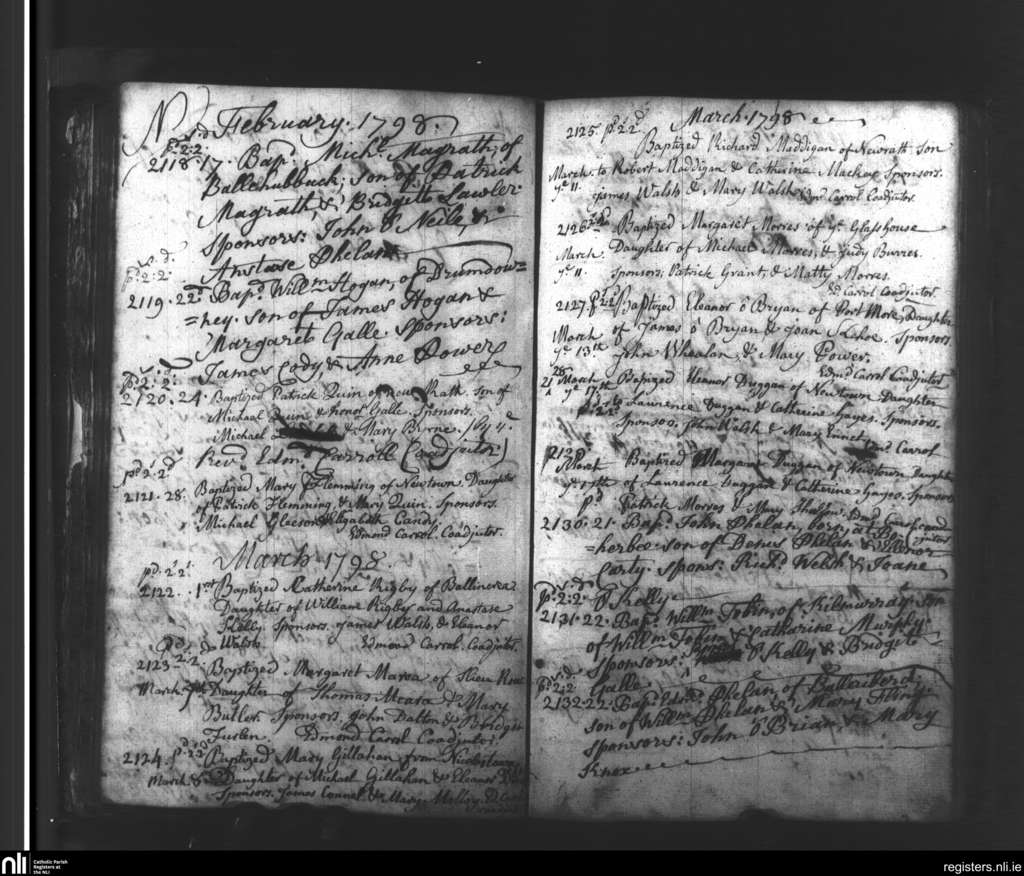 February. 1798.
s. d
p. 2:2.
2118. 17. Bap. Mich. Magrath; of
Ballehubbuck; son of Patrick
Magrath, & Bridgett Lawler.
Sponsors: John O Neile, &
Anstase Phelan
s. d.
p. 2:2.
2119. 22. Bapd. Willm. Hogan, of Drumdow=
=hey. son of James Hogan &
Margarit Galle. Sponsors:
James Cody, & Anne Power
p. 2: 2:
2120. 24. Baptized Patrick Quin of Rath son of
Michael Quin & honor Galle. Sponsors.
Michael & Mary Byrne.
Revd. Edmd. Carroll (Coadjutor)
pd. 2. 2
2121. 28. Baptized Mary Flemming of Newtown, Daughter
of Patrick Flemming, & Mary Quin. Sponsors.
Michael Gleeson & Elizabeth Candy.
Edmond Carrol. Coadjutor.
March 1798.
pd. 2. 2.
2122. 1st Baptized Catherine Rigby of Ballincrea
Daughter of William Rigby and Anastase
Kelly. Sponsors. James Walsh, & Eleanor
Walsh. Edmond Carrol. Coadjutor.
pd. 2.2
2123 Baptized Margaret Mara of Slieu Roe
March 7th Daughter of Thomas Meara & Mary
Butler. Sponsors, John Dalton & Bridget
Edmond Carrol Coadjutor.
2124. pd. 2.2 Baptized Mary Gillahan from
March 8 Daughter of Michael Gillahan & Eleanor
Sponsors. James Connel, & Mary Molloy.
March 1798
2125. pd. 2.2 Baptized Richard Maddigan of Newrath. son
March to Robert Maddigan & Catherine Mackey Sponsors.
ye 11. James Walsh & Mary Walsh. Edmd Carrol Coadjutor.
2126 Baptized Margaret Morres of ye Glasshouse
March. Daughter of Michael Morres, & Judy Burres.
ye 11. Sponsors; Patrick Grant, & Matty Morres.
Ed Carrol Coadjutor.
2127. pd. 2.2 Baptized Eleanor o Bryan of Port More, Daughter
March of James o Bryan & Joan Kehoe. Sponsors
ye 13th John Whealan, & Mary Power.
Edmd Carrol Coadjutor
28
21 March Baptized Eleanor Duggan of Newtown Daughter
ye 17th to Lawrence Duggan & Catherine Hayes. Sponsors.
Sponsors. John Walsh & Mary
Edmd Carrol
2129
March Baptized Margaret Duggan of Newtown Daughter
ye 17th of Laurence Duggan & Catherine Hayes. Sponsors
pd Patrick Morres & Mary Edmd Carrol Coadjutor
2130. 21. Bap. John Phelan, born at
=herbee: son of Denes Phelan & Honor
Carty. Spons: Richd. Welsh & Joane
O Skelly
s. d.
p. 2:2
2131. 22. Bap. Willm Tobin, of Kilmurray. son
of Willm Tobin & Catharine Murphy.
Sponsors: O Kelly & Bridget
Galle.
s. d.
p. 2:2
2132. 22. Bap. Edmd. Phelan, of
son of Willm Phelan & Mary
Sponsors: John O Brian, & Mary
Knox
nli
Catholic Parish
Registers at
the NLI
registers.nli.ie